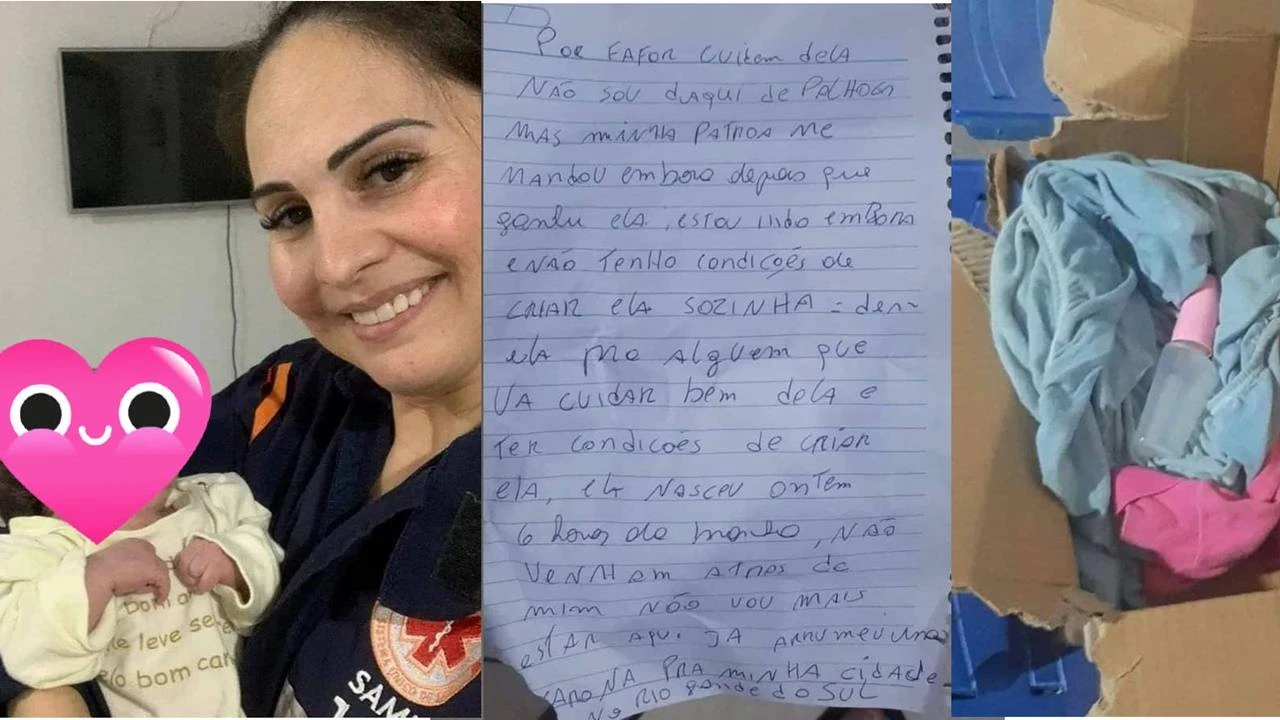 Por FAFOR CUidem delA
NÃO SOU dAqui de PALHOCA
MAS minHA PATROA Me
MANdoU emboro depois que
ganhu elA, estou indo emBora
e NÃO TeNHo Condições de
CRIAR elA SOZINHA = dem
elA pro Alguem que
VA CUIDAR bem delA e
TER Condicoẽs de CRIAR
elA, elA NASCeU ONTem
6 horas do manha, NÃO
VeNHAm ATRAS de
mim NÃO VOU MAIS
estAR AQUi JA ARRUMei UMA
CARONA PRA MiNHA cidAde
No RIO gande do SUL
bom
leve se
bom car
SAM